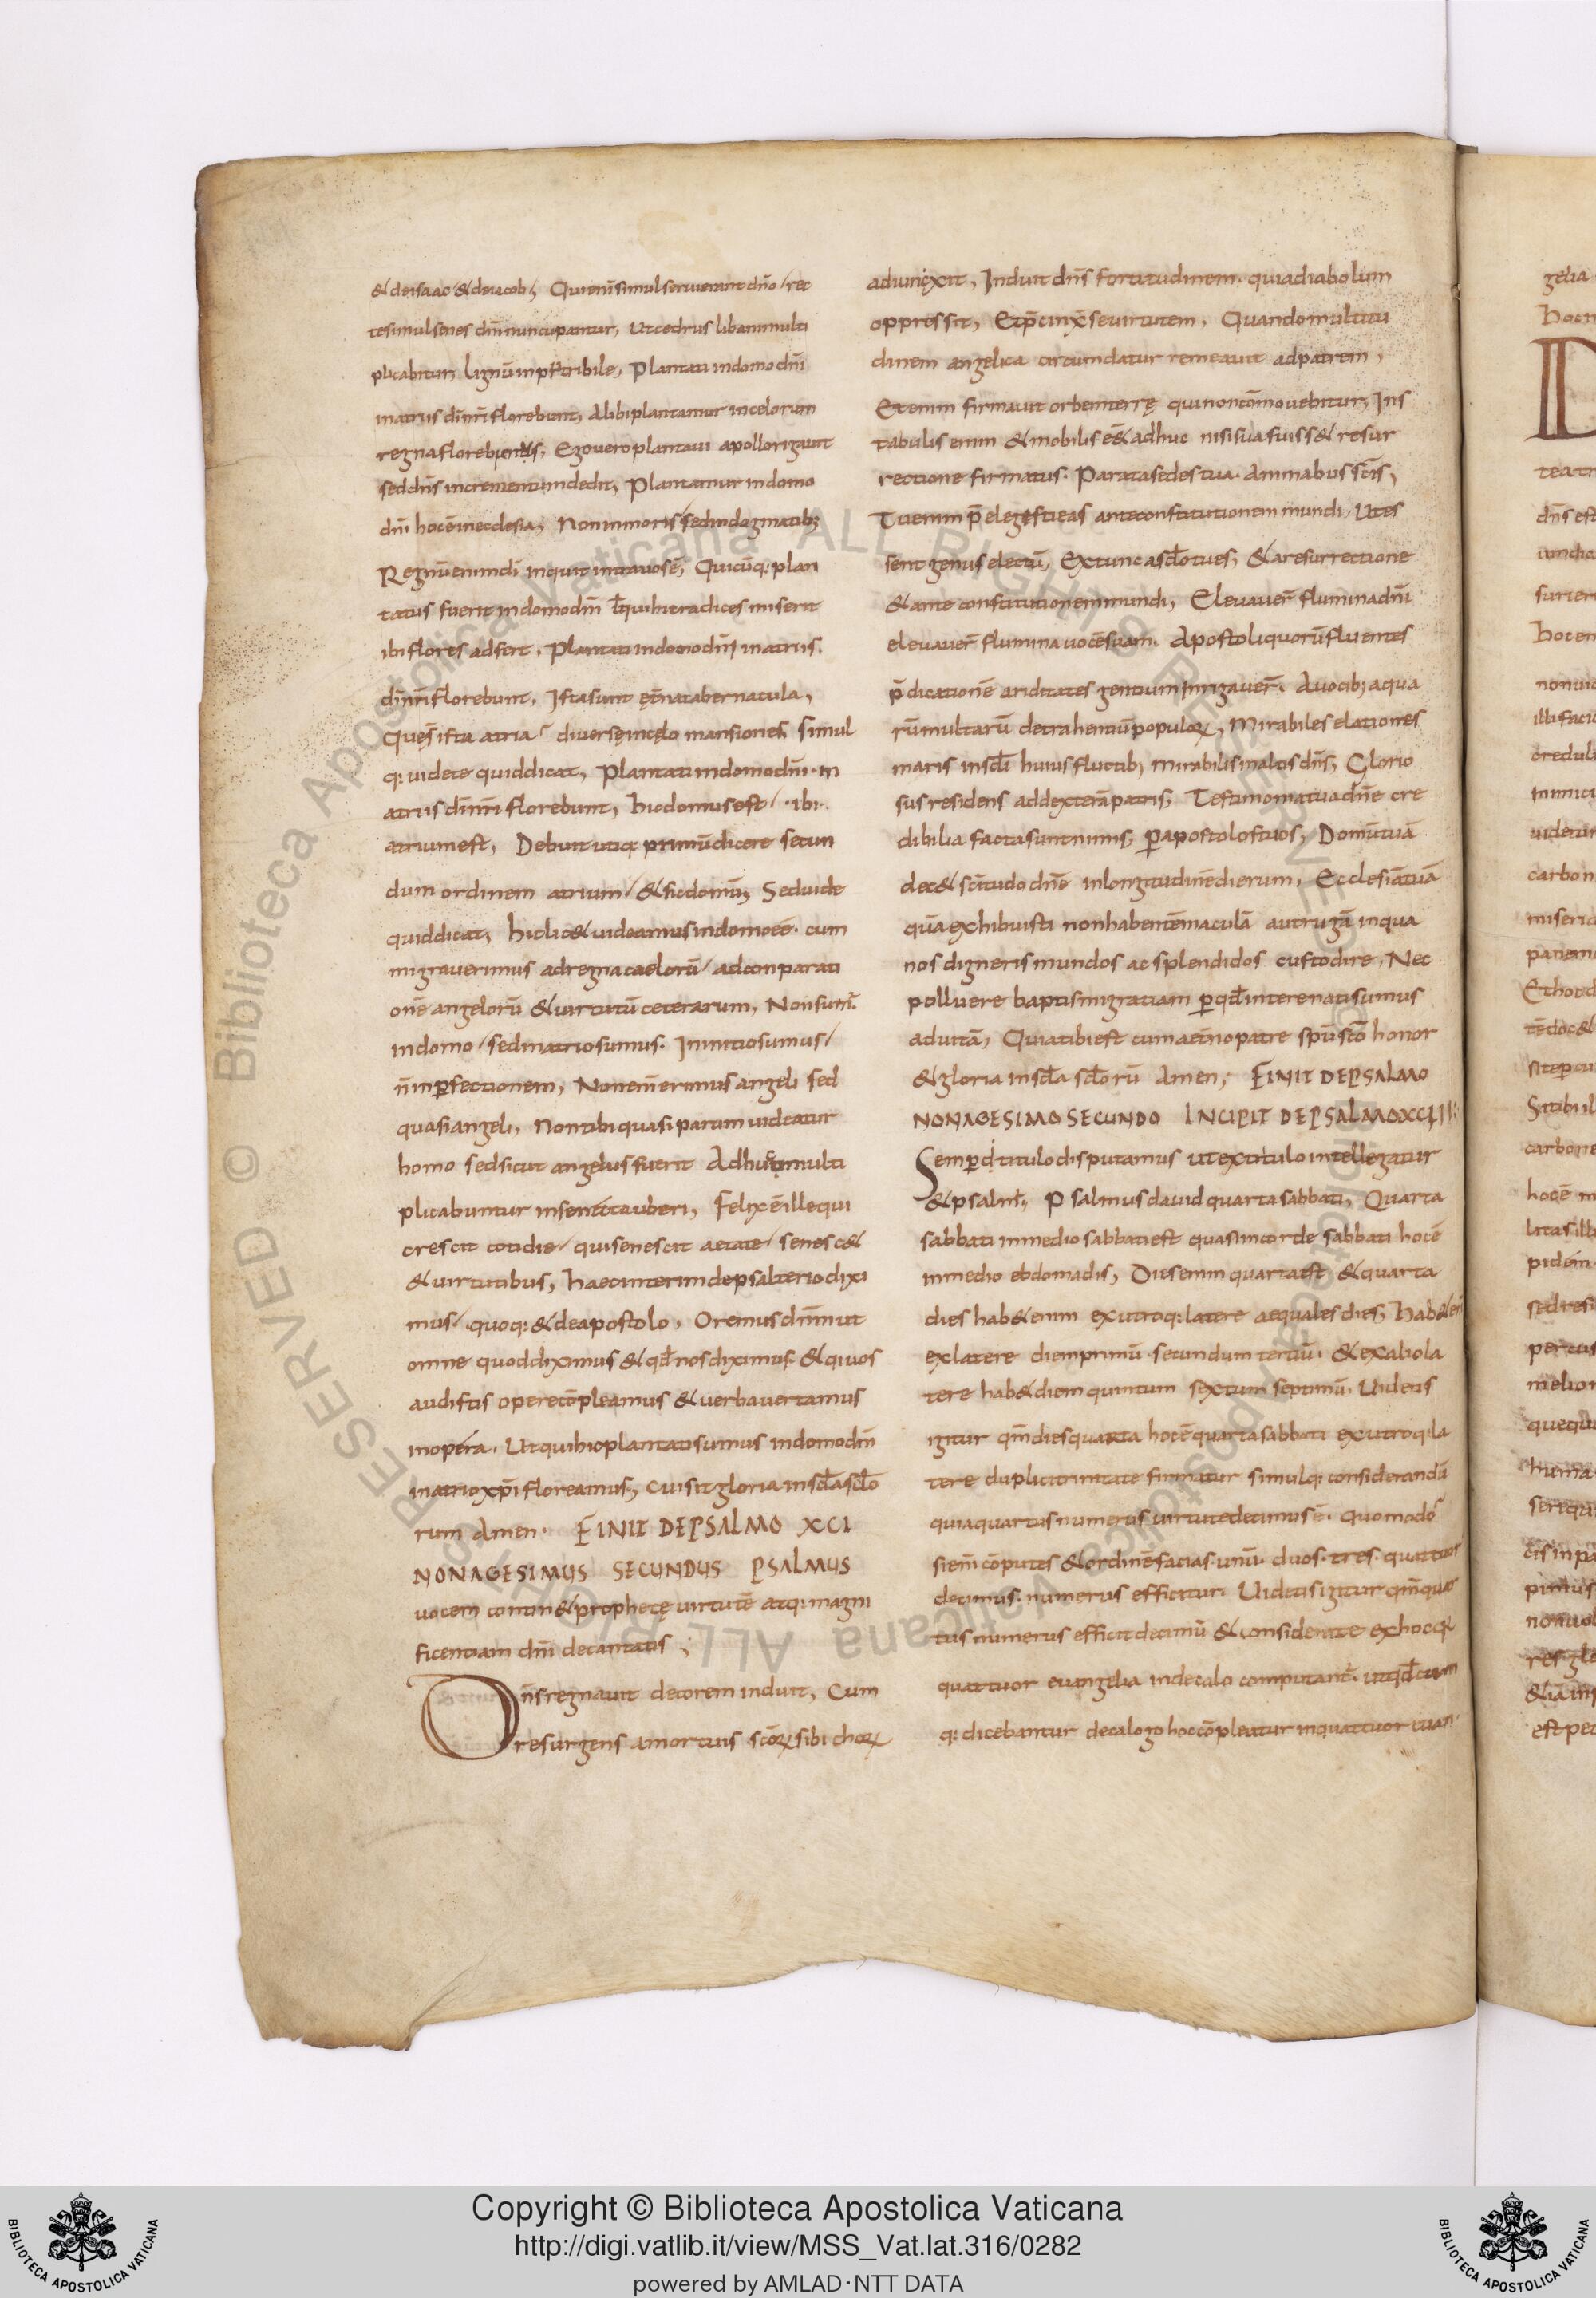 & deisaac & deiacob; Quienī simul seruierant dño / rec
te simul senes dñī nuncupantur, Ut cedrus libani multi
plicabitur, lignū inputribile, Plantati indomo dñī
inatriis dīnr̄i florebunt, Alibi plantamur incelorum
regna florebimus, Ego uero plantaui apollo rigauit
sed dñs incrementum dedit, Plantamur indomo
dñi hocē inecclesia, Non inmoris sed indogmatibꝫ
Regnū enim dī inquit intrauosē, Quicūq: plan
tatus fuerit indomo dñī ł qui hic radices miserit
ibi flores adfert, Plantati indomo dñi inatriis.
dīnr̄i florebunt, Ista sunt ętna tabernacula,
Quęs̄ ista atria? diuersę incęlo mansiones, simul
q: uidete quid dicat, Plantati indomo dñi · in
atriis dīnr̄i florebunt, hic domus est / · ibi ·
atrium est, Debuit utiq: primū dicere secun
dum ordinem atrium / & sic domū, Sed uide
quid dicat, hic lic& uideamus indomo eē · cum
migrauerimus ad regna caelorū / ad conparati
onē angelorū & uirtutū ceterarum, Non sum᷒
indomo / sed inatrio sumus. Ininitio sumus /
n̄ inꝑfectionem, Non enī erimus angeli sed
quasi angeli, Non tibi quasi parum uideatur
homo sed sicut angelus fuerit Adhuc multi
plicabuntur insenecta uberi, Felix ē ille qui
crescit cotidie / qui senescit aetate / senesc&
& uirtutibus, haec interim depsalterio dixi
mus / quoq: & deapostolo, Oremus dñm ut
omne quod diximus & qđ nos diximus & qi uos
audistis opere cōpleamus & uerba uertamus
inopera. Ut qui hic plantati sumus indomo dñī
inatrio xp̄i floreamus, cui sit gloria insc̄la sc̄lo
rum Amen · FINIT DEPSALMO XCI
NONAGESIMUS SECUNDUS PSALMUS
uocem contin& prophetę uirtutē atq: magni
ficentiam dñi decantatis;
Dñs regnauit decorem induit, Cum
resurgens amortuis scōrꝝ sibi chorꝝ
adiunxit, Induit dñs fortitudinem · quia diabolum
oppressit, Et p̄cinx̄ se uirtutem, Quando multitu
dinem angelica circumdatur remeauit ad patrem,
Etenim firmauit orbem terrę qui non cōmouebitur, Ins
tabulis enim & mobilis eē& adhuc nisi sua fuiss& resur
rectione firmatus. Parata sedes tua. Animabus scīs,
Tu enim p̄elegesti eas ante constitutionem mundi, Ut es
sent genus electū, Extunc asclo tu es, & aresurrectione
& ante constitutionem mundi, Eleuauer̄ flumina dñi
eleuauer̄ flumina uocē suam. Apostoli quorū fluentes
p̄dicationē ariditates gentium inrigauer̄. Auocibꝫ aqua
rū multarū detrahentiū populorꝝ, Mirabiles elationes
maris insc̄li huius fluctibꝫ mirabilis inaltis dñs, Glorio
sus residens ad dexterā patris, Testimonia tua dñe cre
dibilia facta sunt nimis, ꝑ apostolos tuos, Domū tuā
dec& scītudo dñe inlongitudinē dierum, Ecclesiā tuā
quā exhibuisti non habentē maculā aut rugā inqua
nos digneris mundos ac splendidos custodire, Nec
polluere baptismi gratiam ꝑ qđ inte renati sumus
ad uitā, Quia tibi est cum aetno patre spū scō honor
& gloria insc̄la sc̄lorū Amen; FINIT DEPSALMO
NONAGESIMO SECUNDO INCIPIT DEPSALMO XCIII:
Semper de titulo disputamus ut ex titulo intellegatur
& psalm᷒, Psalmus dauid quarta sabbati, Quarta
sabbati inmedio sabbati est quasi incorde sabbati hocē
inmedio ebdomadis, Dies enim quarta est & quarta
dies hab& enim ex utroq: latere aequales dies, Hab& enī
ex latere diem primū · secundum tertiū · & ex alio la
tere hab& diem quintum sextum septimū. Uidens
igitur qm̄ dies quarta hocē quarta sabbati ex utroq: la
tere duplici trinitate firmatur simulq: considerandū
quia quartus numerus uirtute decimus ē. Quomodo?
si enī cōputes & ordinē facias · unū · duos · tres · quattuor
decimus · numerus efficitur. Uidetis igitur qm̄ quar
tus numerus efficit decimū & considerate ex hoc qi
quattuor euangelia indecalo computant᷒. ut qđ cum
q: dicebantur decalogo hoc cōpleatur inquattuor euan